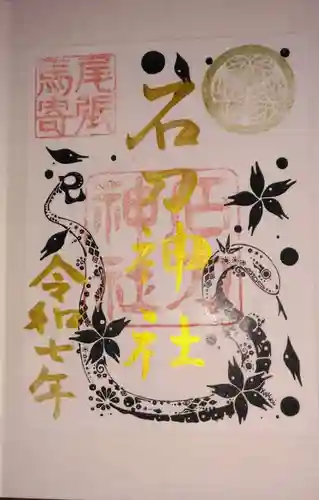 尾張
馬寄
石刀神社
石刀
神社
令和七年